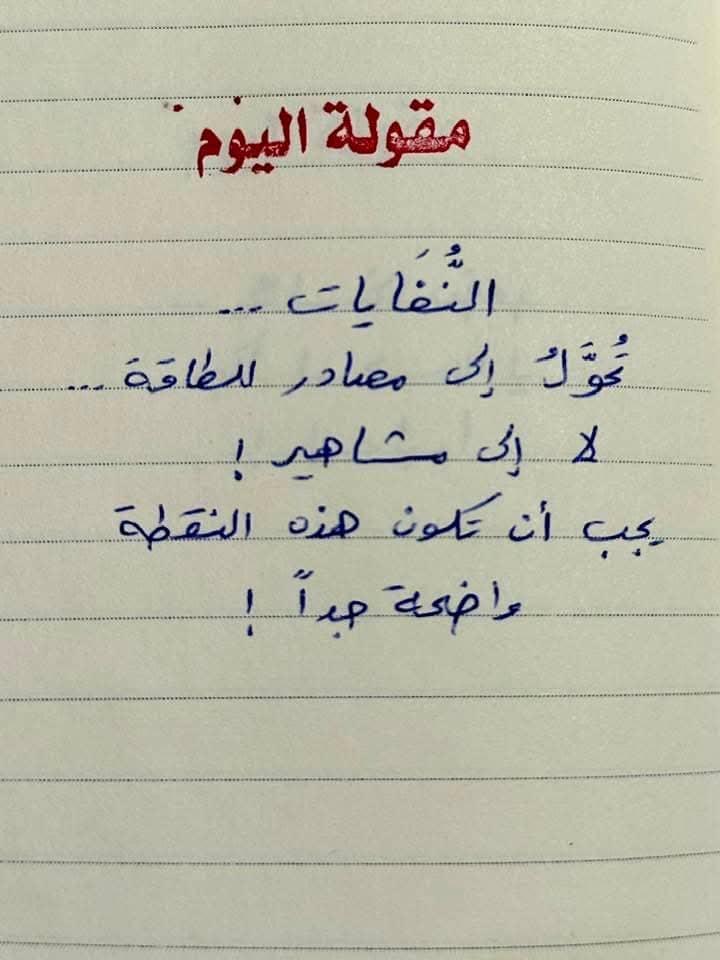 مقولة اليوم
النُّفَايات ...
تُحَوَّلُ إلى مصادر للطاقة ...
لا إلى مشاهير !
يجب أن تكون هذه النقطة
واضحة جداً !